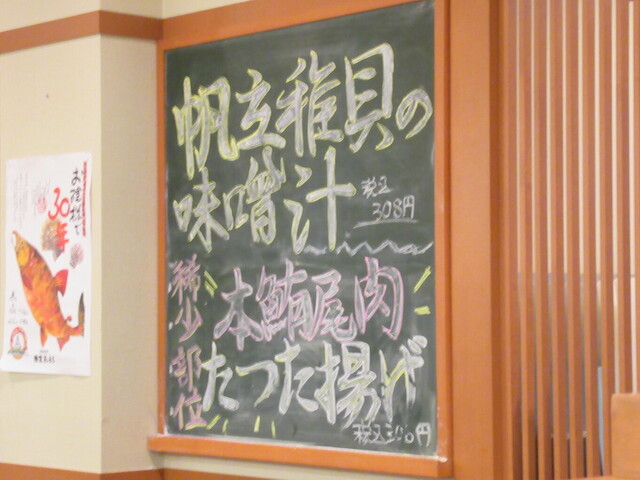 帆立稚貝の
味噌汁
税込
308円
稀少部位
本鮪尾肉
たつた揚げ
お陰様で
30年